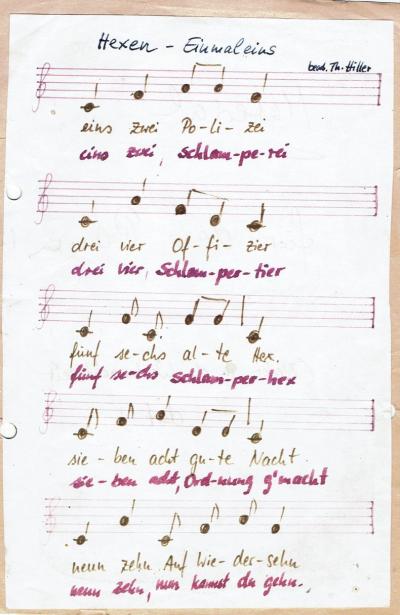 Hexen - Einmaleins
bearb. Th. Hiller
eins zwei Po-li-zei
eins zwei, Schlam-pe-rei
drei vier Of-fi-zier
drei vier, Schlam-per-tier
fünf se-chs al-te Hex.
fünf se-chs Schlam-per-hex
sie-ben acht gu-te Nacht.
sie-ben acht, Ord-nung g'macht
neun zehn Auf Wie-der-sehn
neun zehn, nun kannst du gehn.